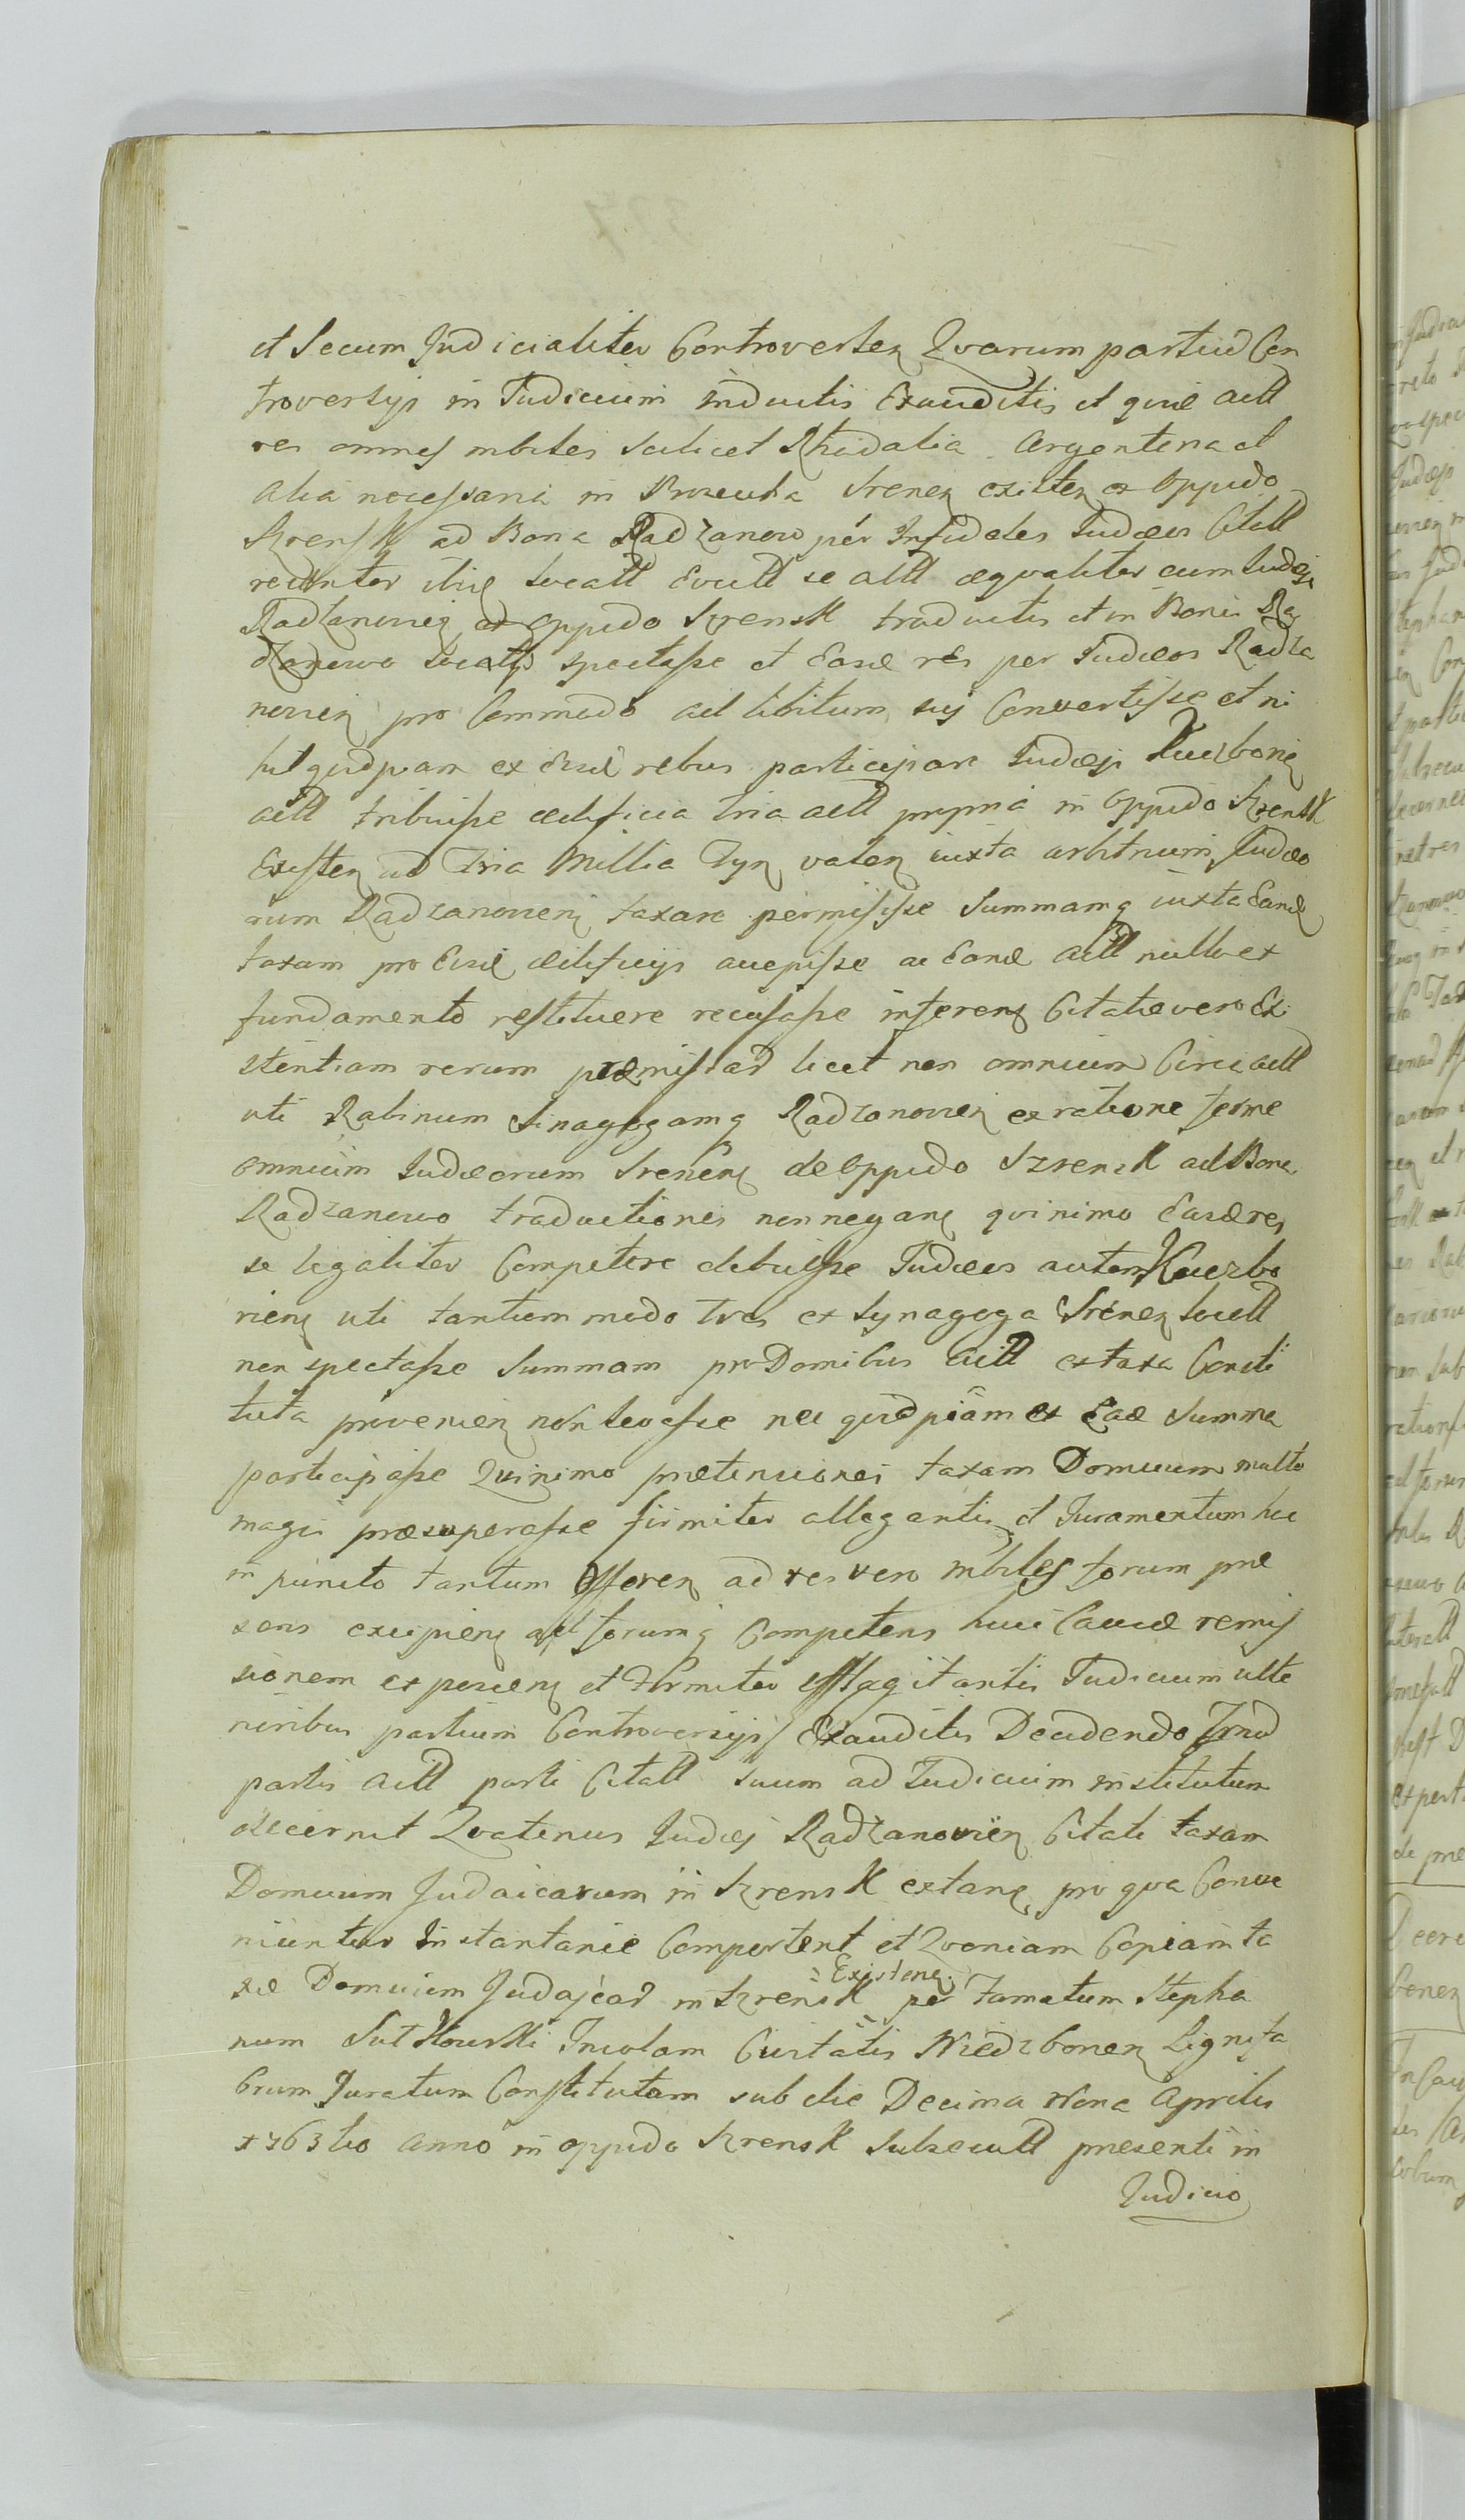 et Secum Judicialiter Controverten Quarum partiu Con
troversijs in Judicium inductis Exauditis et quia actt
res omnes mbiles scilicet Rhodalia Argentena et
alia necessaria in Srenen existen ex Oppido
Szrensk ad Bona Radzanow per Infideles Judæos Citatt
recenter ibiq locatt se actt æqualiter cum Judæjs
Radzanovien ex Oppido Szrensk traductis et in Bonis Ra
dzanowo locatis spectasse et Easd res per Judæos Radza
novien pro Commodo ad libitum suj Convertisse et ni
hil quidpiam ex Eisd rebus participare Judæjs Kuczborien
actt tribuisse ædificia tria actt propria in Oppido Szrensk
Existen ad Tria Millia Tyn valen iuxta arbitrium Judæo
rum Radzanovien taxare permisisse Summamq iuxta Eand
taxam pro Eisd ædificijs accepisse ac Eand actt nullo ex
fundamento restituere recusasse inferen Citatæ vero Exi
stentiam rerum præmissar licet non omnium Circa actt
uti Rabinum Sinagogamq Radzanovien ex ratione ferme
omnium Judæorum Srenen de Oppido Szrensk ad Bona
Radzanowo traductiones non negan quinimo Easd res
se legaliter Competere debuisse Judæos autem Kuczbo
rien uti tantummodo tres ex Synagoga Srenen
non spectasse Summam pro Domibus actt ex taxa Consti
tuta provenien non levasse nec quidpiam ex Ead Summa
participasse Quinimo prætensiones taxam Domuum multo
magis præsuperasse firmiter allegantis et Juramentum hoc
in puncto tantum Offeren ad res vero mbiles forum præ
sens excipien ad forumq Competens huic Causæ remis
sionem ex poscen et firmiter efflagitantis Judicium ulte
rioribus partium Controversijs Exauditis Decidendo Trnum
partis actt parti Citatt suum ad Judicium institutum
decernit Quatenus Judæj Radzanovien Citati taxam
Domuum Judaicarum in Szrensk extan pro qua Conve
niuntur Instantanie Comportent et Quoniam Copiam ta
xæ Domuum Judajcar in Szrensk Existen per Famatum Stepha
num Sutkowski Incolam Civitatis Niedzbonen Lignifa
brum Juratum Constitutam sub die Decima Nona Aprilis
1763tio Anno in oppido Szrensk Subsecutt præsenti in
Judicio